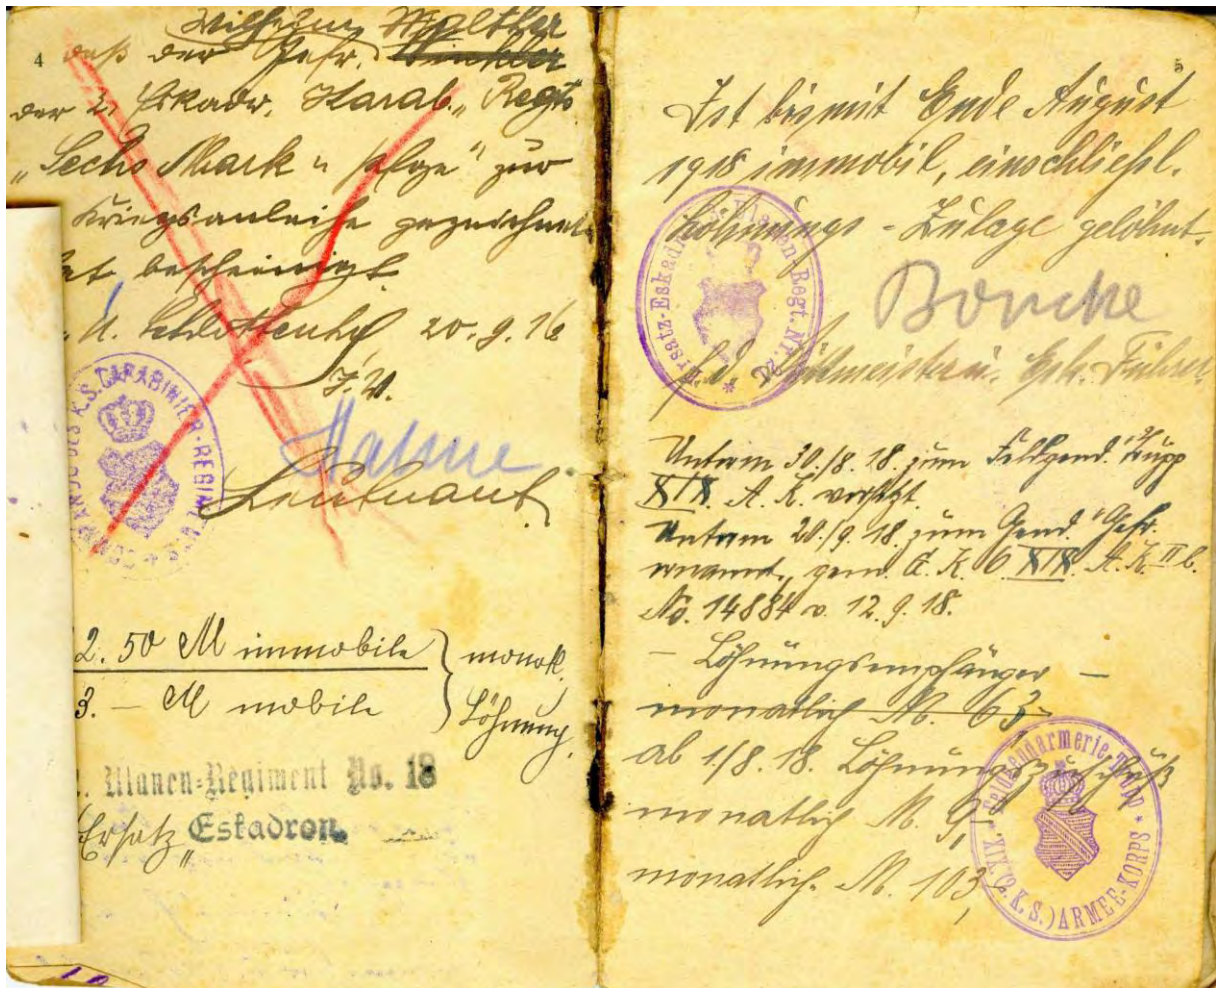 4
Wilhelm Walther
daß der Gefr. Winkler
der 2. Eskadr. Karab. Regts
„Sechs Mark" zur
Kriegsanleihe gezeichnet
hat bescheinigt
20.9.16
J. V.
Leutnant
COMPANIE DES K.S. CARABINIER-REGIMENTS
2. 50 M immobile
3. — M mobile
monatl.
Löhnung.
Ulanen-Regiment No. 18
Ersatz Eskadron.
5
Ist bis mit Ende August
1918 immobil, einschließl.
Löhnungs-Zulage gelöhnt.
Ersatz-Eskadron Ulanen Regt. Nr. 18
Borcke
Rittmeister u. Esk. Führer.
Unterm 30./8. 18. zum Feldgend. Trupp
XIX. A. K. versetzt.
Unterm 20./9. 18. zum Gend. Gefr.
ernannt, gem. G. K. O. XIX. A. K. II b.
No. 14884 v. 12. 9. 18.
— Löhnungsempfänger —
monatlich M. 63
ab 1/8. 18. Löhnungszuschuß
monatlich M. 9,
monatlich. M. 103,
Feldgendarmerie-Trupp XIX. (2. K. S.) ARMEE-KORPS